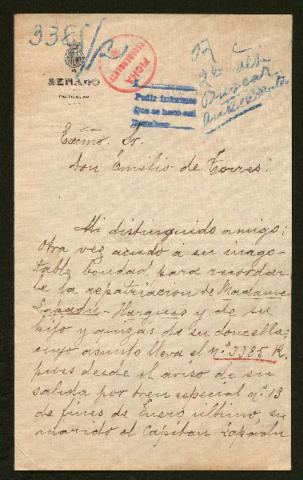 3385/R
SENADO
PARTICULAR
FICHA
Pedir informes
Que se hace así
Excmo. Sr.
Don Emilio de Torres.
Mi distinguido amigo:
Otra vez acudo a su inago-
table bondad, para recordar-
le la repatriación de Madame
y de su
hijo y amigas de su doncella;
cuyo asunto lleva el nº 3385 R,
pues desde el aviso de su
salida por tren especial nº 13
de fines de Enero último, su
marido el Capitán